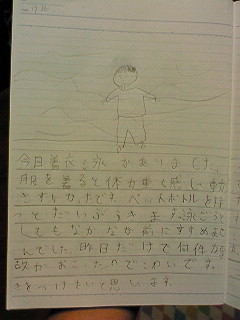 今日着衣え泳がありました。
服を着ると体が重く感じ動
きずらかったです。ペットボトルを持
ってだいぶうきます。泳ごうと
してもなかなか前にすすめませ
んでした。昨日だけで何件か事
故がおこったのでこわいです。
きをつけたいと思います。